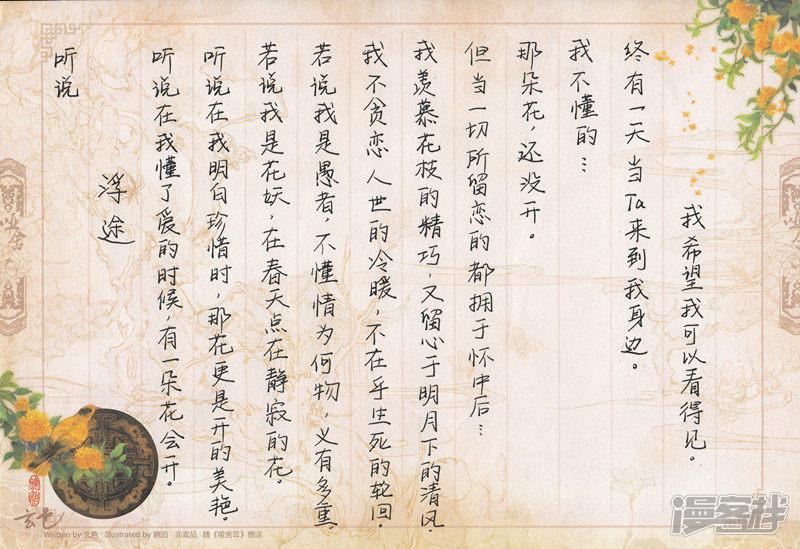 听说
浮途
听说在我懂了爱的时候，有一朵花会开。
听说在我明白珍惜时，那花更是开的美艳。
若说我是花妖，在春天点在静寂的花。
若说我是愚者，不懂情为何物，义有多重。
我不贪恋人世的冷暖，不在乎生死的轮回。
我羡慕花枝的精巧，又留心于明月下的清风。
但当一切所留恋的都拥于怀中后…
那朵花，还没开。
我不懂的…
终有一天当Ta来到我身边。
我希望我可以看得见。
玄色
Written by 玄色 Illustrated by 晓泊 非卖品 · 随《哑舍 叁》赠送
漫客栈